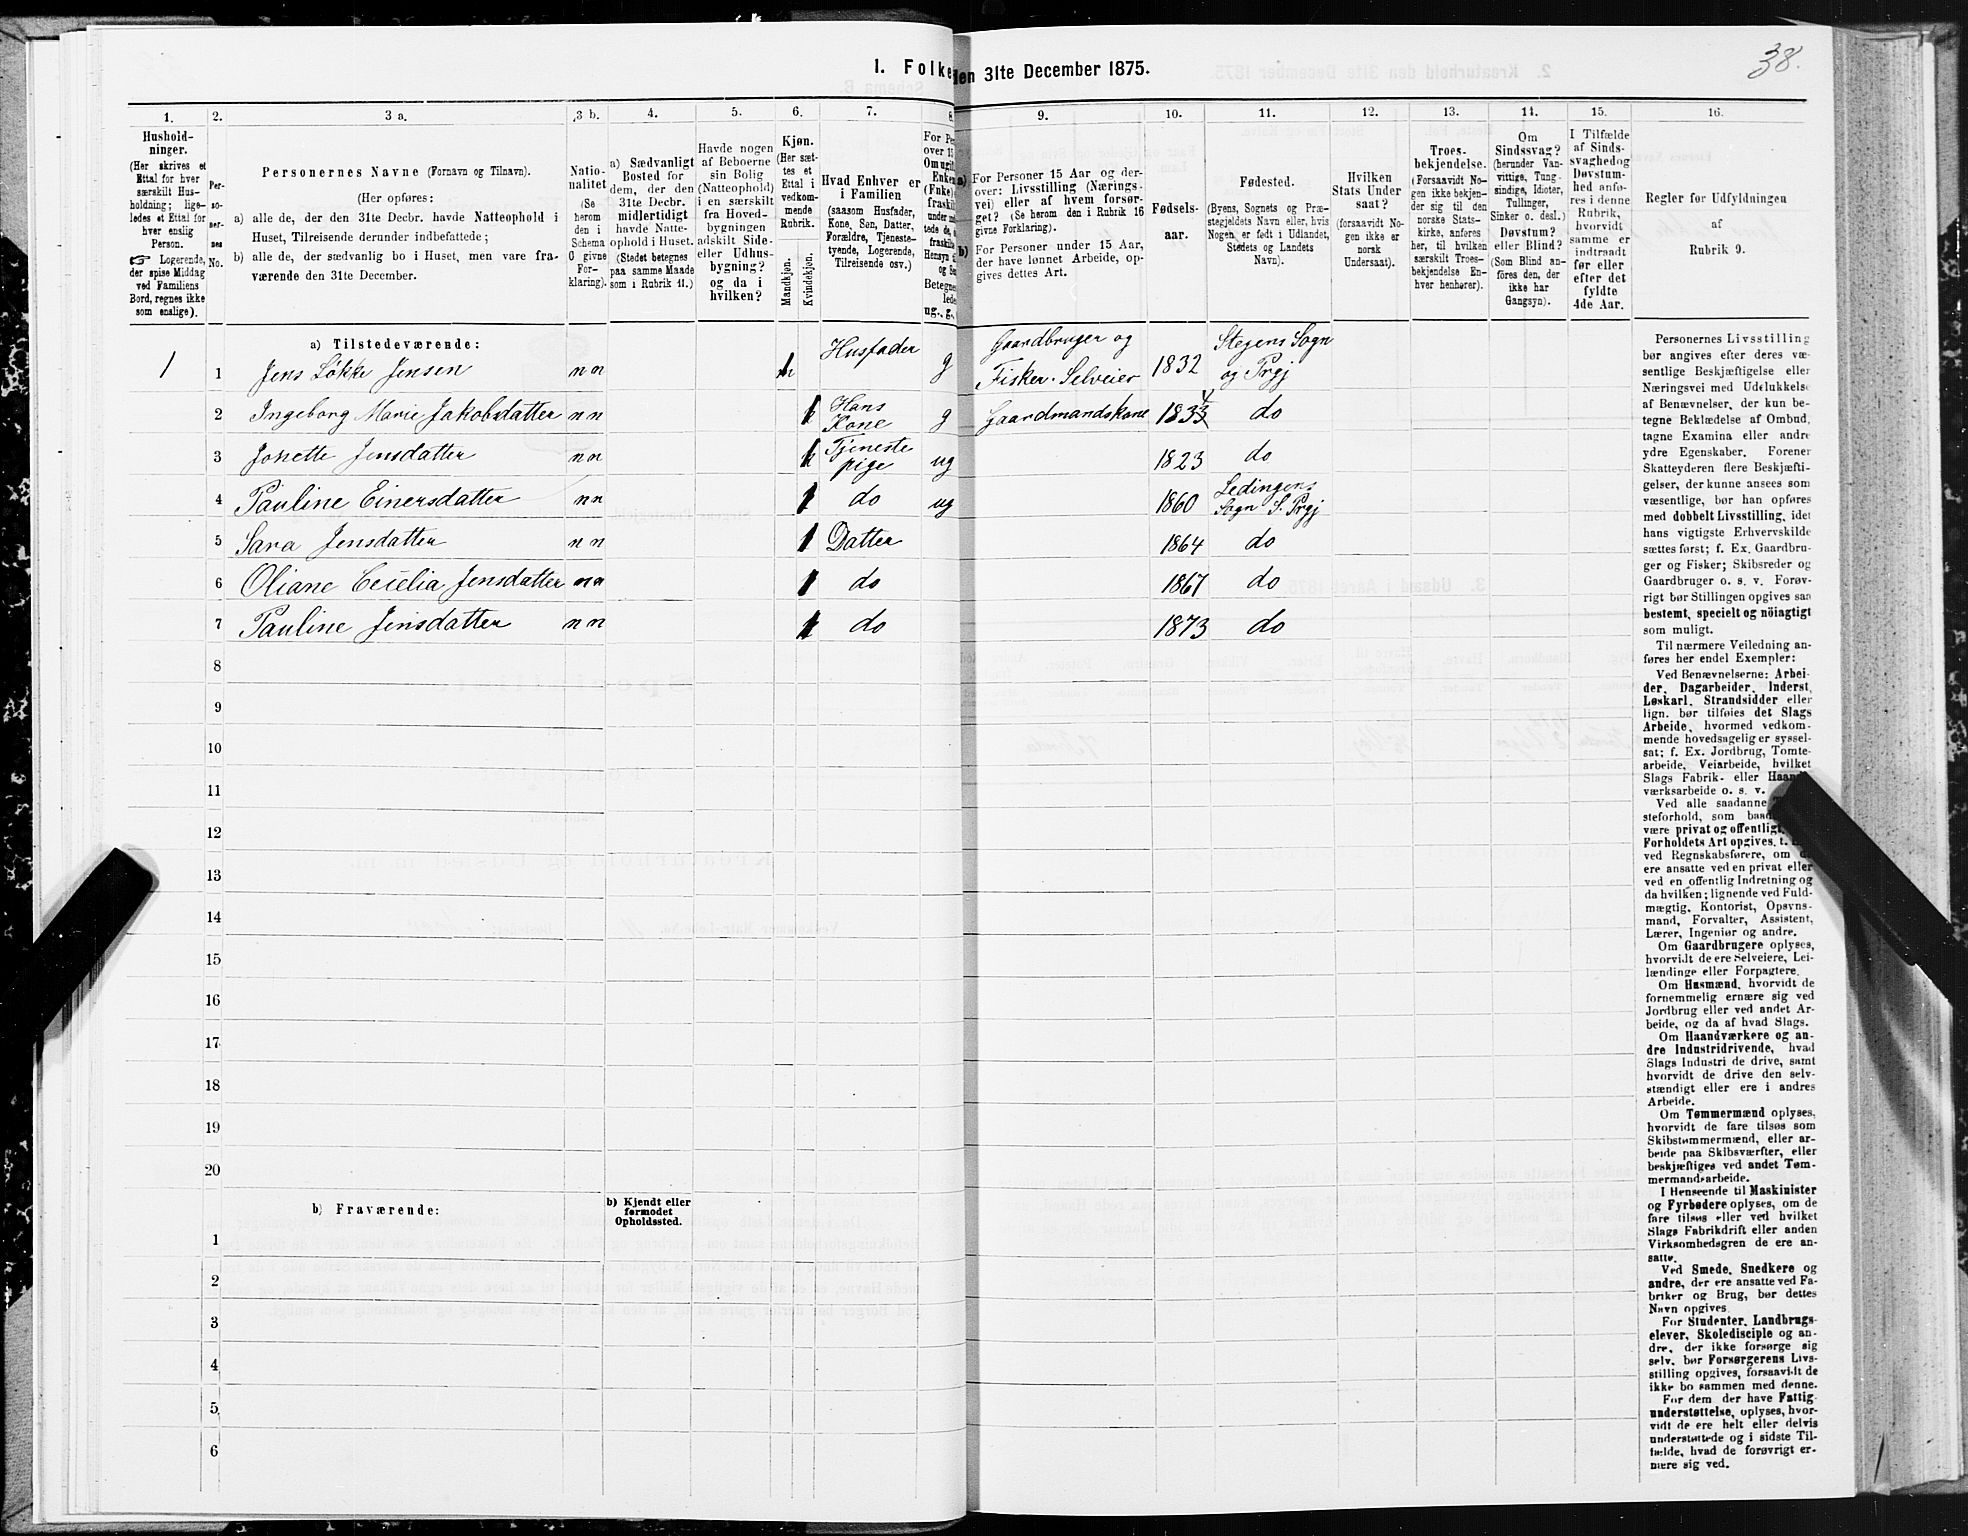 38.
1. Folke
den 31te December 1875.
1.
2.
3 a.
3 b.
4.
5.
6.
7.
8.
9.
10.
11.
12.
13.
14.
15.
16.
Hushold-
ninger.
(Her skrives et
Ettal for hver
særskilt Hus-
holdning; lige-
ledes et Ettal for
hver enslig
Person.
☞ Logerende,
der spise Middag
ved Familiens
Bord, regnes ikke
som enslige).
Per-
so-
ner-
nes
No.
Personernes Navne (Fornavn og Tilnavn).
(Her opføres:
a) alle de, der den 31te Decbr. havde Natteophold i
Huset, Tilreisende derunder indbefattede;
b) alle de, der sædvanlig bo i Huset, men vare fra-
værende den 31te December.
Natio-
nalitet
(Se
herom
den i
Schema
C givne
For-
klaring).
a) Sædvanligt
Bosted for
dem, der den
31te Decbr.
midlertidigt
havde Natte-
ophold i Huset.
(Stedet betegnes
paa samme Maade
som i Rubrik 11.)
Havde nogen
af Beboerne
sin Bolig
(Natteophold)
i en særskilt
fra Hoved-
bygningen
adskilt Side-
eller Udhus-
bygning?
og da i
hvilken?
Kjøn.
(Her sæt-
tes et
Ettal i
vedkom-
mende
Rubrik.
Mandkjøn.
Kvindekjøn.
Hvad Enhver er
i Familien
(saasom Husfader,
Kone, Søn, Datter,
Forældre, Tjeneste-
tyende, Logerende,
Tilreisende osv.)
For Pe
over 15
Om ugif
Enken
(Fnke)
fraskilt
under
tede de,
fraskil
Hensyn
og Se
Betegne
lede
ug., g.,
a) For Personer 15 Aar og der-
over: Livsstilling (Nærings-
vei) eller af hvem forsør-
get? (Se herom den i Rubrik 16
givne Forklaring).
b) For Personer under 15 Aar,
der have lønnet Arbeide, op-
gives dettes Art.
Fødsels-
aar.
Fødested.
(Byens, Sognets og Præ-
stegjeldets Navn eller, hvis
Nogen er født i Udlandet,
Stedets og Landets
Navn).
Hvilken
Stats Under
saat?
(forsaavidt No-
gen ikke er
norsk
Undersaat).
Troes-
bekjendelse.
(Forsaavidt No-
gen ikke bekjen-
der sig til den
norske Stats-
kirke, anføres
her, til hvilken
særskilt Troes-
bekjendelse En-
hver henhører).
Om
Sindssvag?
(herunder Van-
vittige, Tung-
sindige, Idioter,
Tullinger,
Sinker o. desl.)
Døvstum?
eller Blind?
(Som Blind an-
føres den, der
ikke har
Gangsyn).
I Tilfælde
af Sinds-
svaghedog
Døvstum-
hed anfø-
res i denne
Rubrik,
hvorvidt
samme er
indtraadt
før eller
efter det
fyldte
4de Aar.
Regler for Udfyldningen
af
Rubrik 9.
a) Tilstedeværende:
1 1 Jens Løkke Jensen nn 1 Husfader g Gaardbruger og Fisker. Selveier 1832 Stegens Sogn og Prgj
2 Ingeborg Marie Jakobsdatter nn 1 Hans Kone g Gaardmandskone 1834 do
3 Jonette Jensdatter nn 1 Tjeneste pige ug 1823 do
4 Pauline Einersdatter nn 1 do ug 1860 Ledingens Sogn S. Prgj
5 Sara Jensdatter nn 1 Datter 1864 do
6 Oliane Cecelia Jensdatter nn 1 do 1867 do
7 Pauline Jensdatter nn 1 do 1873 do
8
9
10
11
12
13
14
15
16
17
18
19
20
b) Fraværende:
b) Kjendt eller
formodet
Opholdssted.
1
2
3
4
5
6
Personernes Livsstilling
bør angives efter deres væ-
sentlige Beskjæftigelse eller
Næringsvei med Udelukkelse
af Benævnelser, der kun be-
tegne Beklædelse af Ombud,
tagne Examina eller andre
ydre Egenskaber. Forener
Skatteyderen flere Beskjæfti-
gelser, der kunne ansees som
væsentlige, bør han opføres
med dobbelt Livsstilling, idet
hans vigtigste Erhvervskilde
sættes først; f. Ex. Gaardbru-
ger og Fisker; Skibsreder og
Gaardbruger o. s. v. Forøv-
rigt bør Stillingen opgives saa
bestemt, specielt og nöiagtigt
som muligt.
Til nærmere Veiledning an-
føres her endel Exempler:
Ved Benævnelserne: Arbei-
der, Dagarbeider, Inderst,
Løskarl, Strandsidder eller
lign. bør tilføies det Slags
Arbeide, hvormed vedkom-
mende hovedsagelig er syssel-
sat; f. Ex. Jordbrug, Tomte-
arbeide, Veiarbeide, hvilket
Slags Fabrik- eller Haand-
værksarbeide o. s. v.
Ved alle saadanne
steforhold, som baade
være privat og offentligt,
Forholdets Art opgives, t.
ved Regnskabsførere, om
ere ansatte ved en privat eller
ved en offentlig Indretning og
da hvilken; lignende ved Fuld-
mægtig, Kontorist, Opsyns-
mand, Forvalter, Assistent,
Lærer, Ingeniør og andre.
Om Gaardbrugere oplyses,
hvorvidt de ere Selveiere, Lei-
lændinge eller Forpagtere.
Om Husmænd, hvorvidt de
fornemmelig ernære sig ved
Jordbrug eller ved andet Ar-
beide, og da af hvad Slags.
Om Haandværkere og an-
dre Industridrivende, hvad
Slags Industri de drive, samt
hvorvidt de drive den selv-
stændigt eller ere i andres
Arbeide.
Om Tømmermænd oplyses,
hvorvidt de fare tilsøs som
Skibstømmermænd, eller ar-
beide paa Skibsværfter, eller
beskjæftiges ved andet Tøm-
mermandsarbeide.
I Henseende til Maskinister
og Fyrbødere oplyses, om de
fare tilsøs eller ved hvilket
Slags Fabrikdrift eller anden
Virksomhedsgren de ere an-
satte.
Ved Smede, Snedkere og
andre, der ere ansatte ved Fa-
briker og Brug, bør dettes
Navn opgives.
For Studenter, Landbrugs-
elever, Skoledisciple og an-
dre, der ikke forsørge sig
selv, bør Forsørgerens Livs-
stilling opgives, forsaavidt de
ikke bo sammen med denne.
For dem der have Fattig-
understøttelse, oplyses, hvor-
vidt de ere helt eller delvis
understøttede og i sidste Til-
fælde, hvad de forøvrigt er-
nære sig ved.